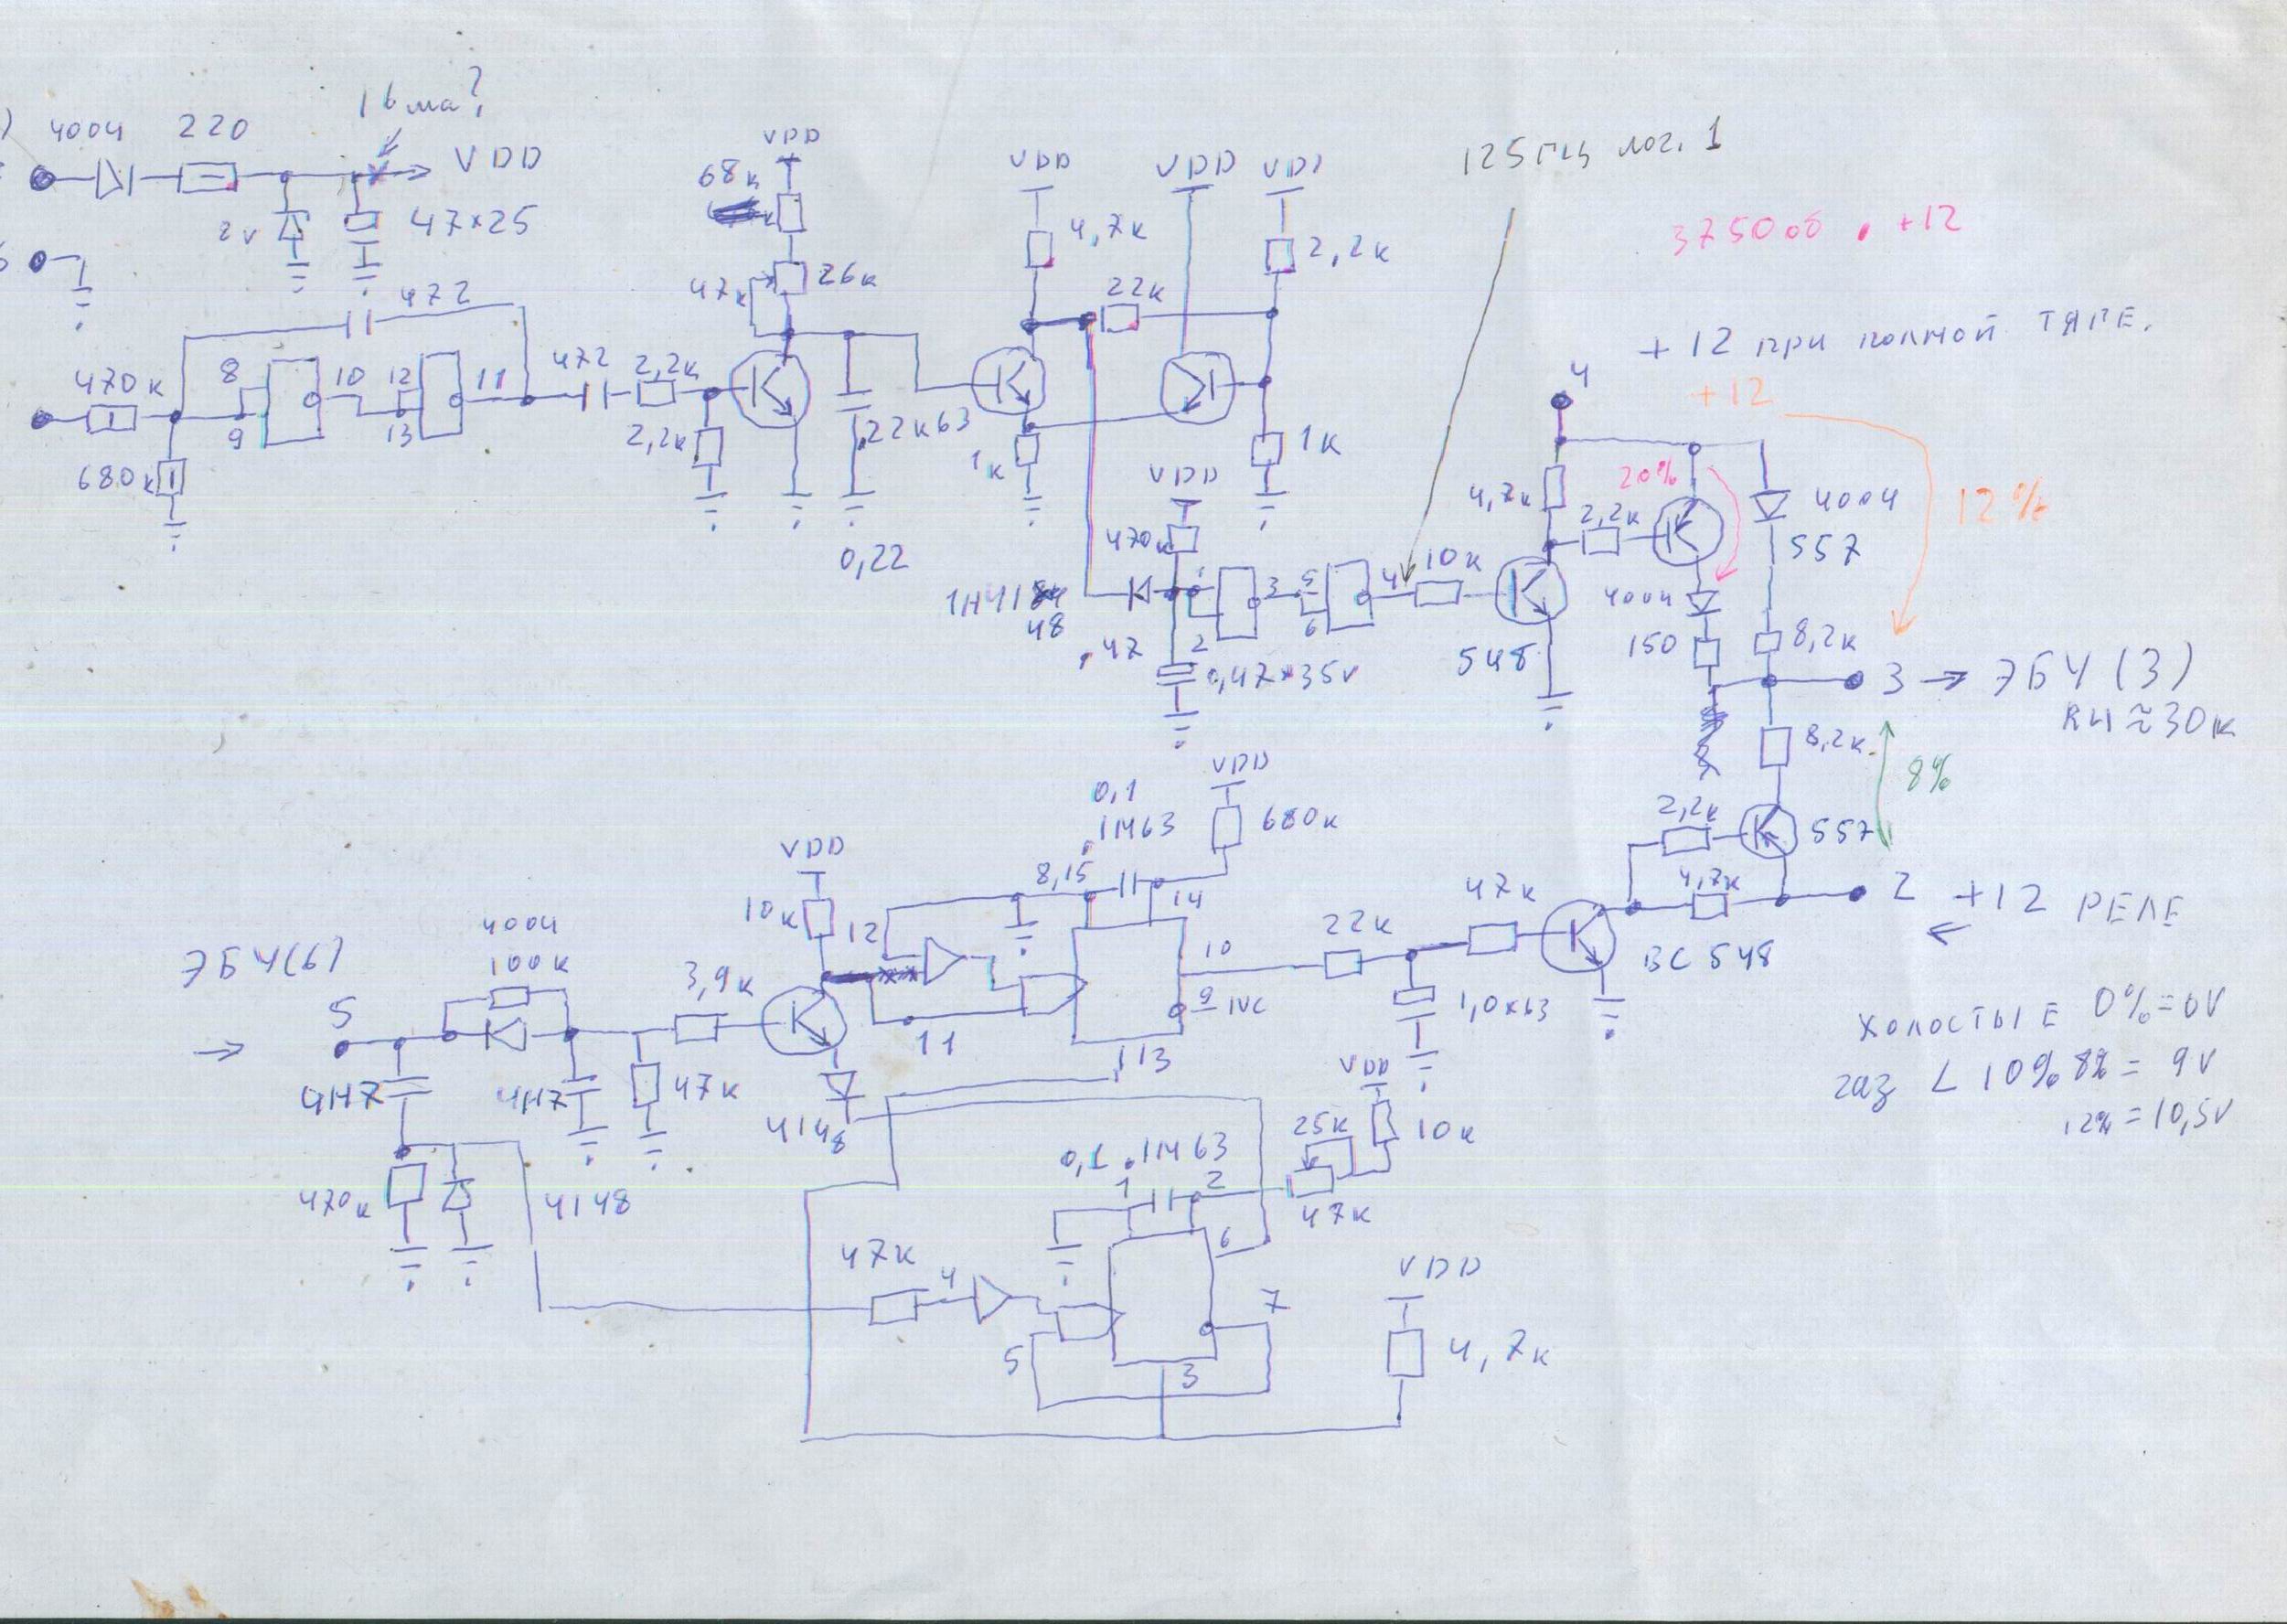 16 ма?
4004 220
VDD
2v 47×25
472
470к 8 10 12 11
9 13
680к
472 2,2к
2,2к
VDD
68к
47к 26к
22к63
0,22
VDD VDD
4,7к 2,2к
22к
1к 1к
VDD
470к
48
.47 1 2 3 5 6 4 10к
0,47×35v
125 гц лог. 1
3750об . +12
+12 при полной тяге.
+12
4
4,7к 20% 2,2к
4004
557
12%
4004
150 8,2к
548
3 → ЭБУ (3)
Rн ≈ 30к
8,2к
8%
2,2к
557
4,7к
2 +12 РЕЛЕ
←
47к
22к
BC 548
1,0×63
VDD
0,1
.1М63 680к
8,15 14
VDD
10к 12
10
9
11 13
ЭБУ(6)
4004
100к
5
3,9к
→
4Н7 4Н7 47к
4148
470к 4148
холостые 0%=0V
газ < 10% 8% = 9V
12% = 10,5V
VDD
25к 10к
0,1 .1М63
1 2
47к
6
47к 4
5 7
3
VDD
4,7к